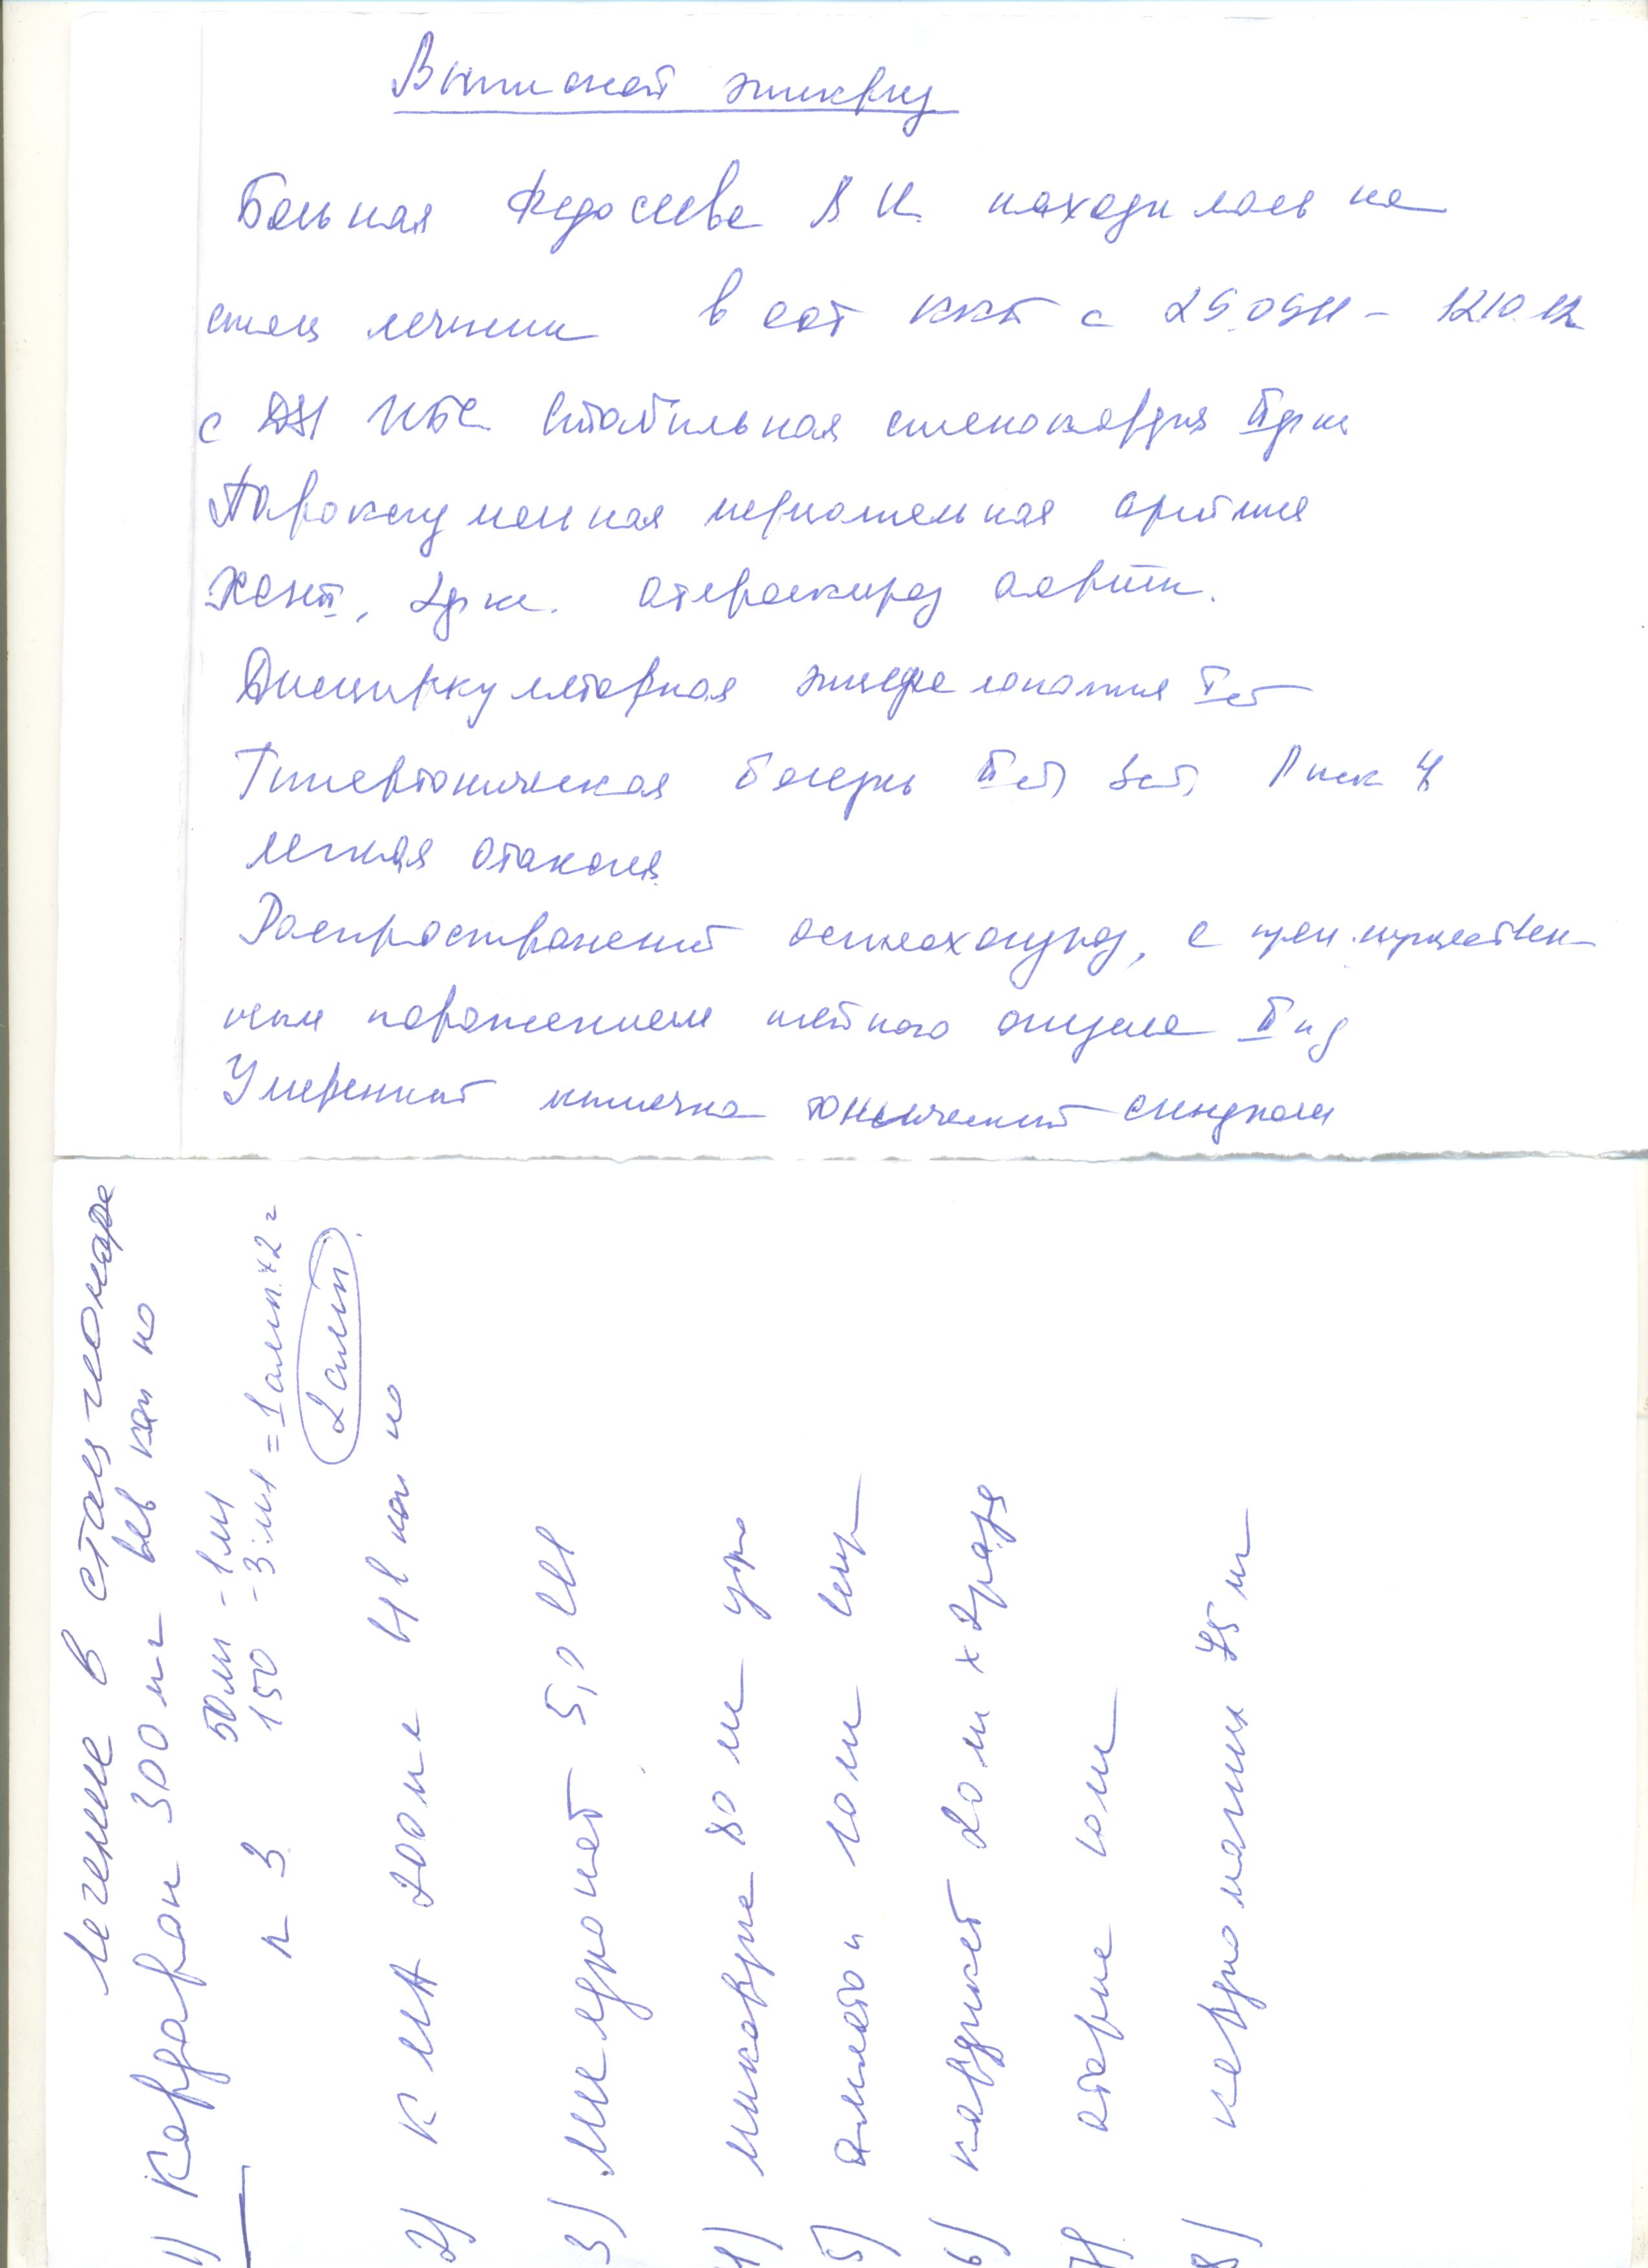 Выписной эпикриз
Больная Федосеева В И. находилась на
стац лечении в с 29.09 11 – 12.10.
с ДЗ ИБС Стабильная стенокардия II ф кл
Пароксизмальная мерцательная аритмия
ХСН II, 2ф кл. Атеросклероз аорты.
Дисциркуляторная энцефалопатия I ст
Гипертоническая болезнь II ст, 3 ст, Риск 4
легкая атаксия
Распространенный остеохондроз, с преимуществен-
ным поражением шейного отдела II пд
Умеренный мышечно тонический синдром
Лечение в стационаре
1) Кордарон 300 мг в/в кап но
50 мг - 1 мл
n 3 150 - 3 мл = 1 амп. x 2 =
2 амп.
2) в/в кап но
3) милдронат 5,0 в/в
4) микардис 80 мг утр
5) амлото п 10 мг веч
6) кардикет 20 мг x 2 раза
7) аторис 10 мг
8) кардиомагнил 75 мг